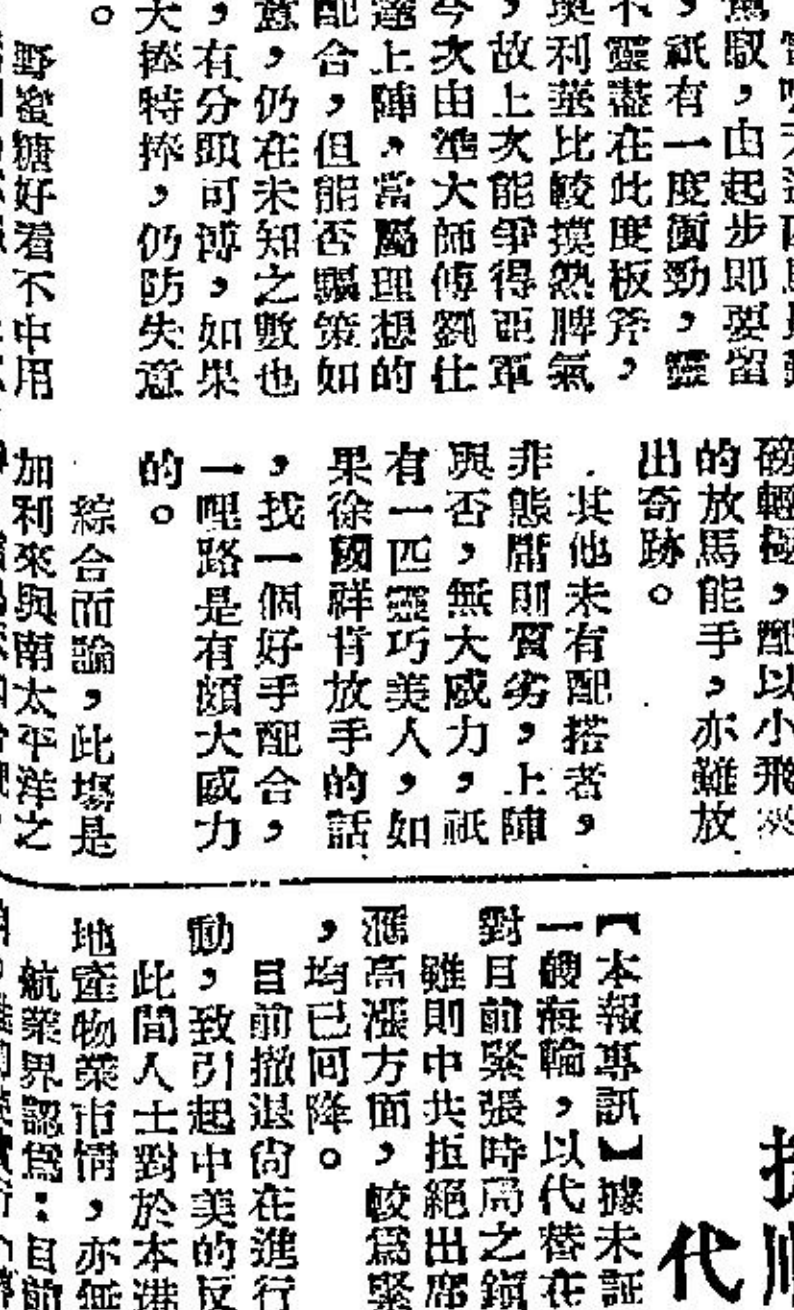 爲馭，由起步即要留
，祇有一度衝勁，靈
不靈盡在此度板斧，
奧利華比較摸熟脾氣
，故上次能爭得亞軍
今次由準大師傅劉仕
逵上陣，當屬理想的
配合，但能否驅策如
意，仍在未知之數也
，有分頭可博，如果
大捧特捧，仍防失意
。
野蜜糖好看不中用
磅輕極，配以小飛
的放馬能手，亦難放
出奇跡。
其他未有配搭者，
非態庸則質劣，上陣
與否，無大威力，祇
有一匹靈巧美人，如
果徐國祥肯放手的話
，找一個好手配合，
一哩路是有頗大威力
的。
綜合而論，此塲是
加利來與南太平洋之
代
【本報專訊】據未証
一艘海輪，以代替在
對目前緊張時局之鎭
雖則中共拒絕出席
漲高漲方面，較爲緊
，均已囘降。
目前撤退尙在進行
動，致引起中美的反
此間人士對於本港
地產物業市情，亦無
航業界認爲：目前